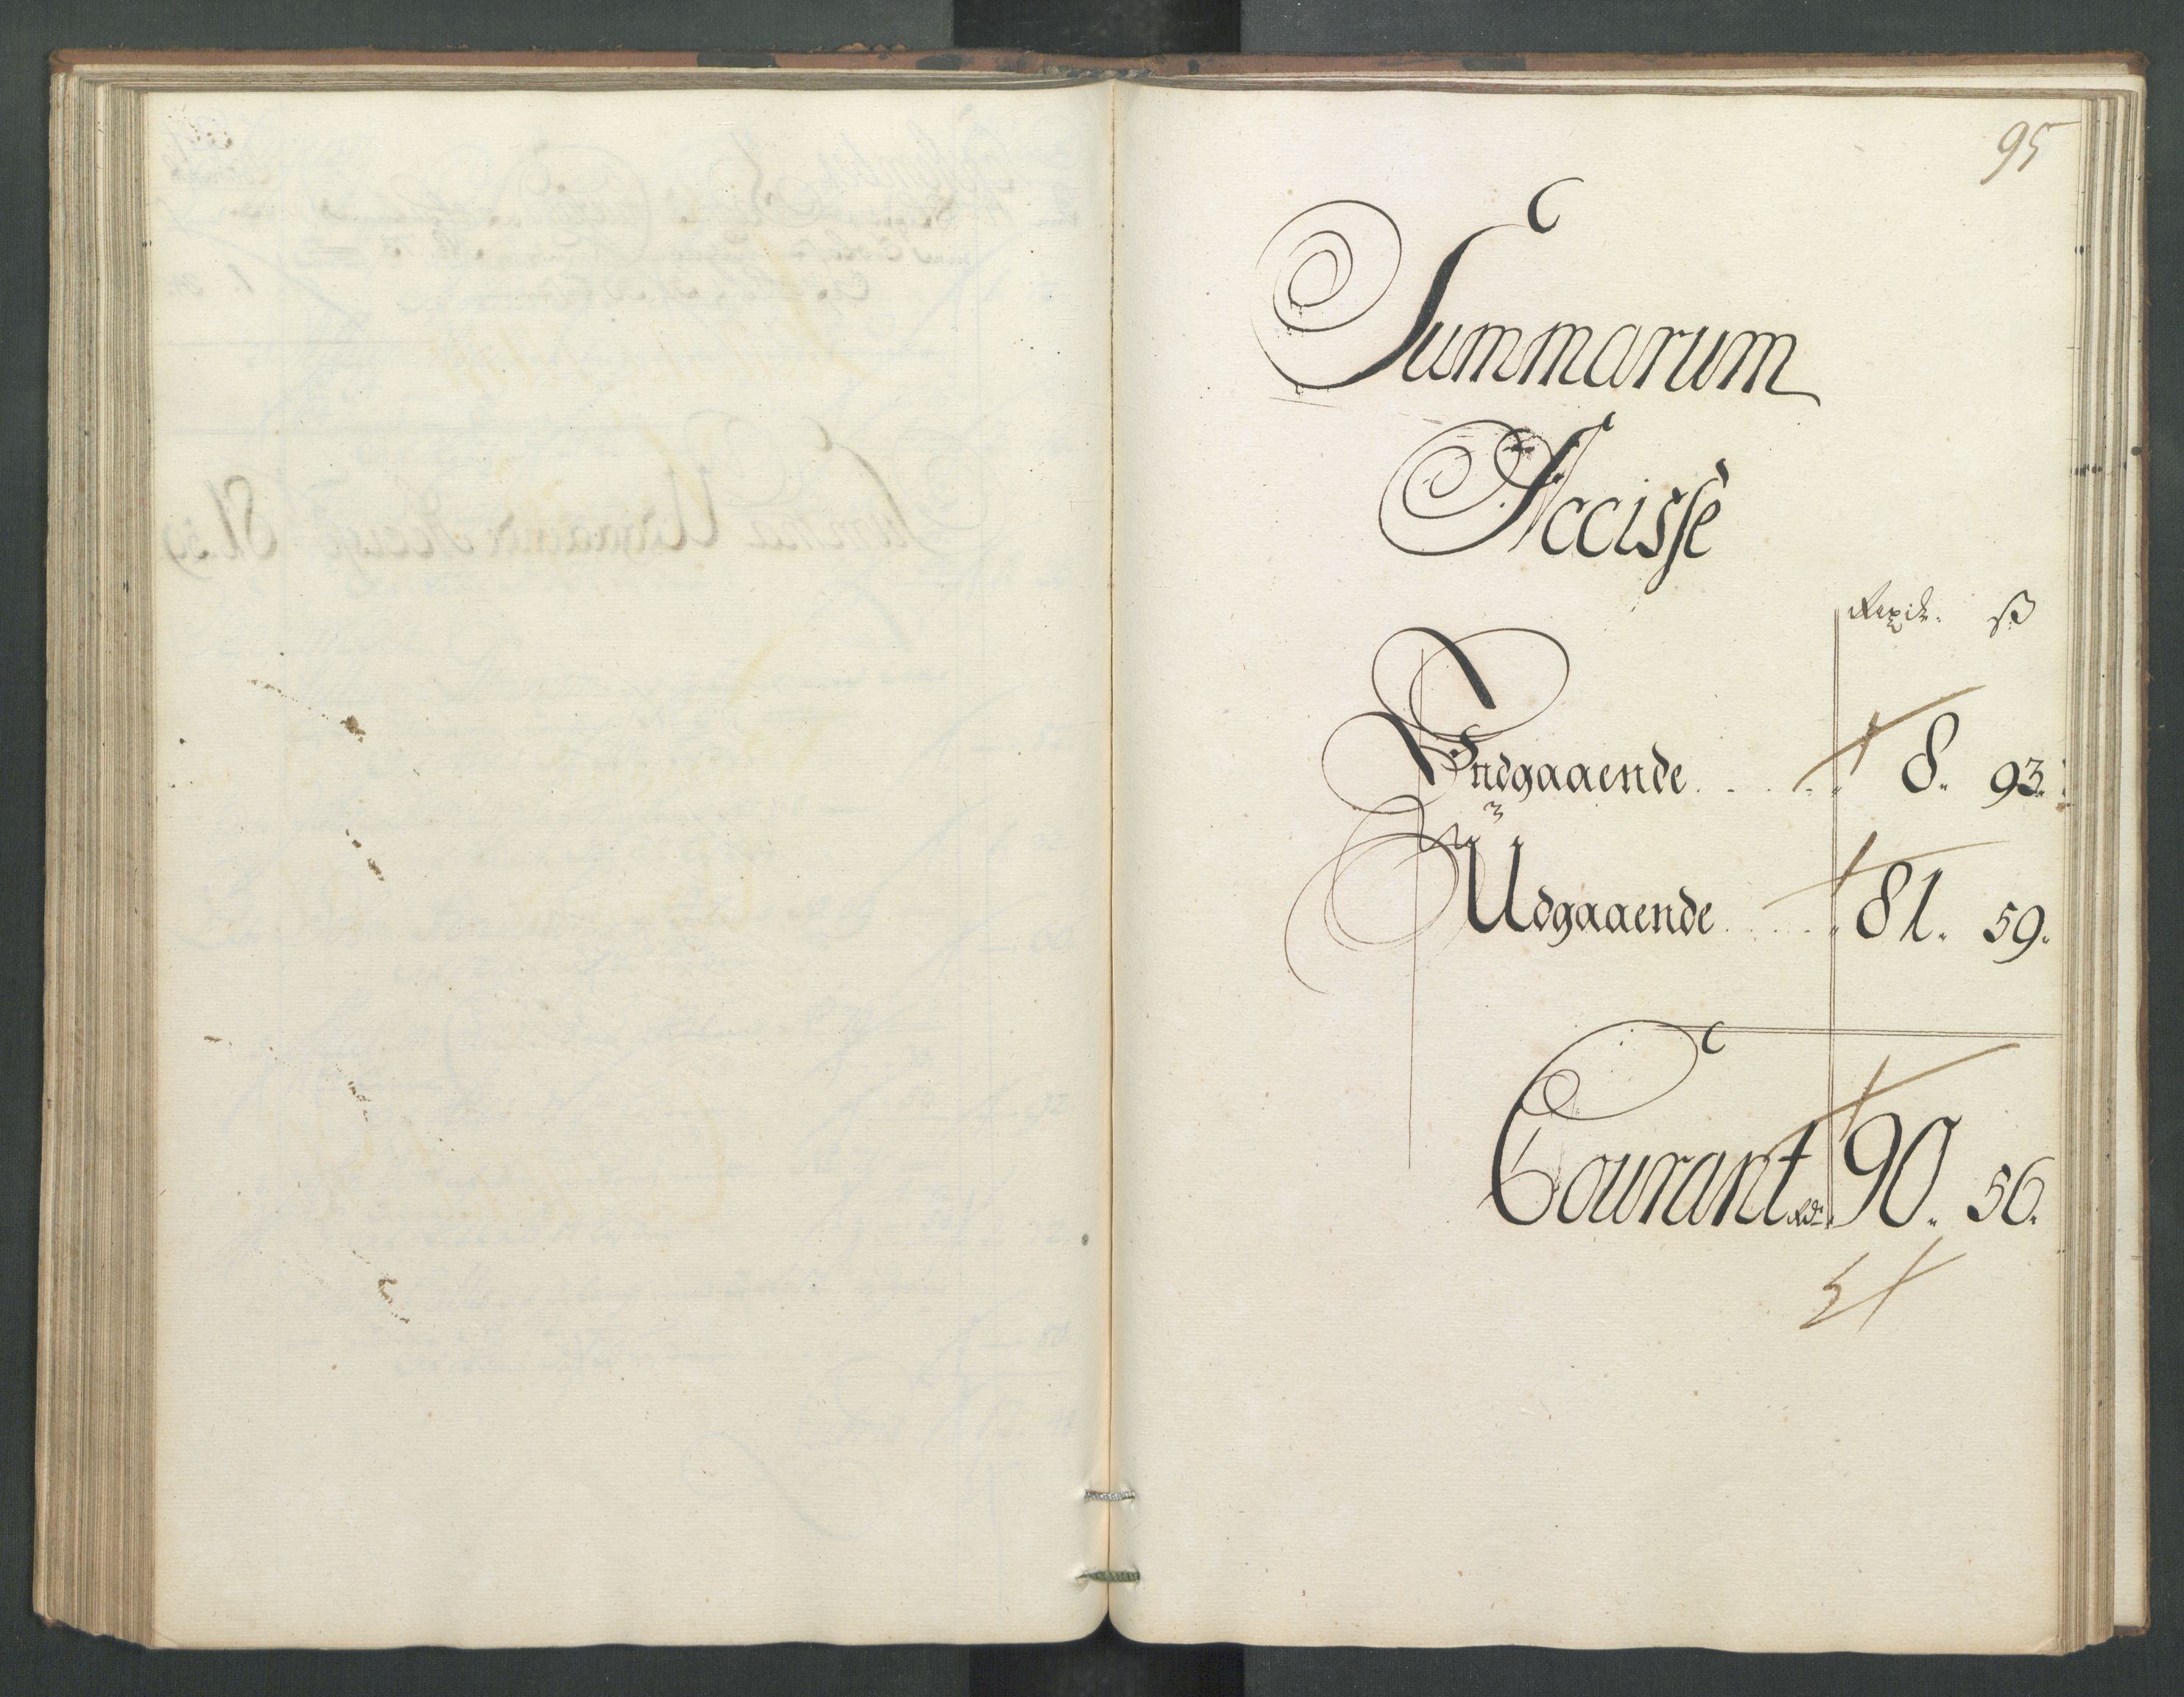 95
Summarum
Accisse
Rixdr. ß
Indgaaende . . . . . . 8. 93.
Udgaaende . . . . . . 81. 59.
Courant Rdr. 90. 56.